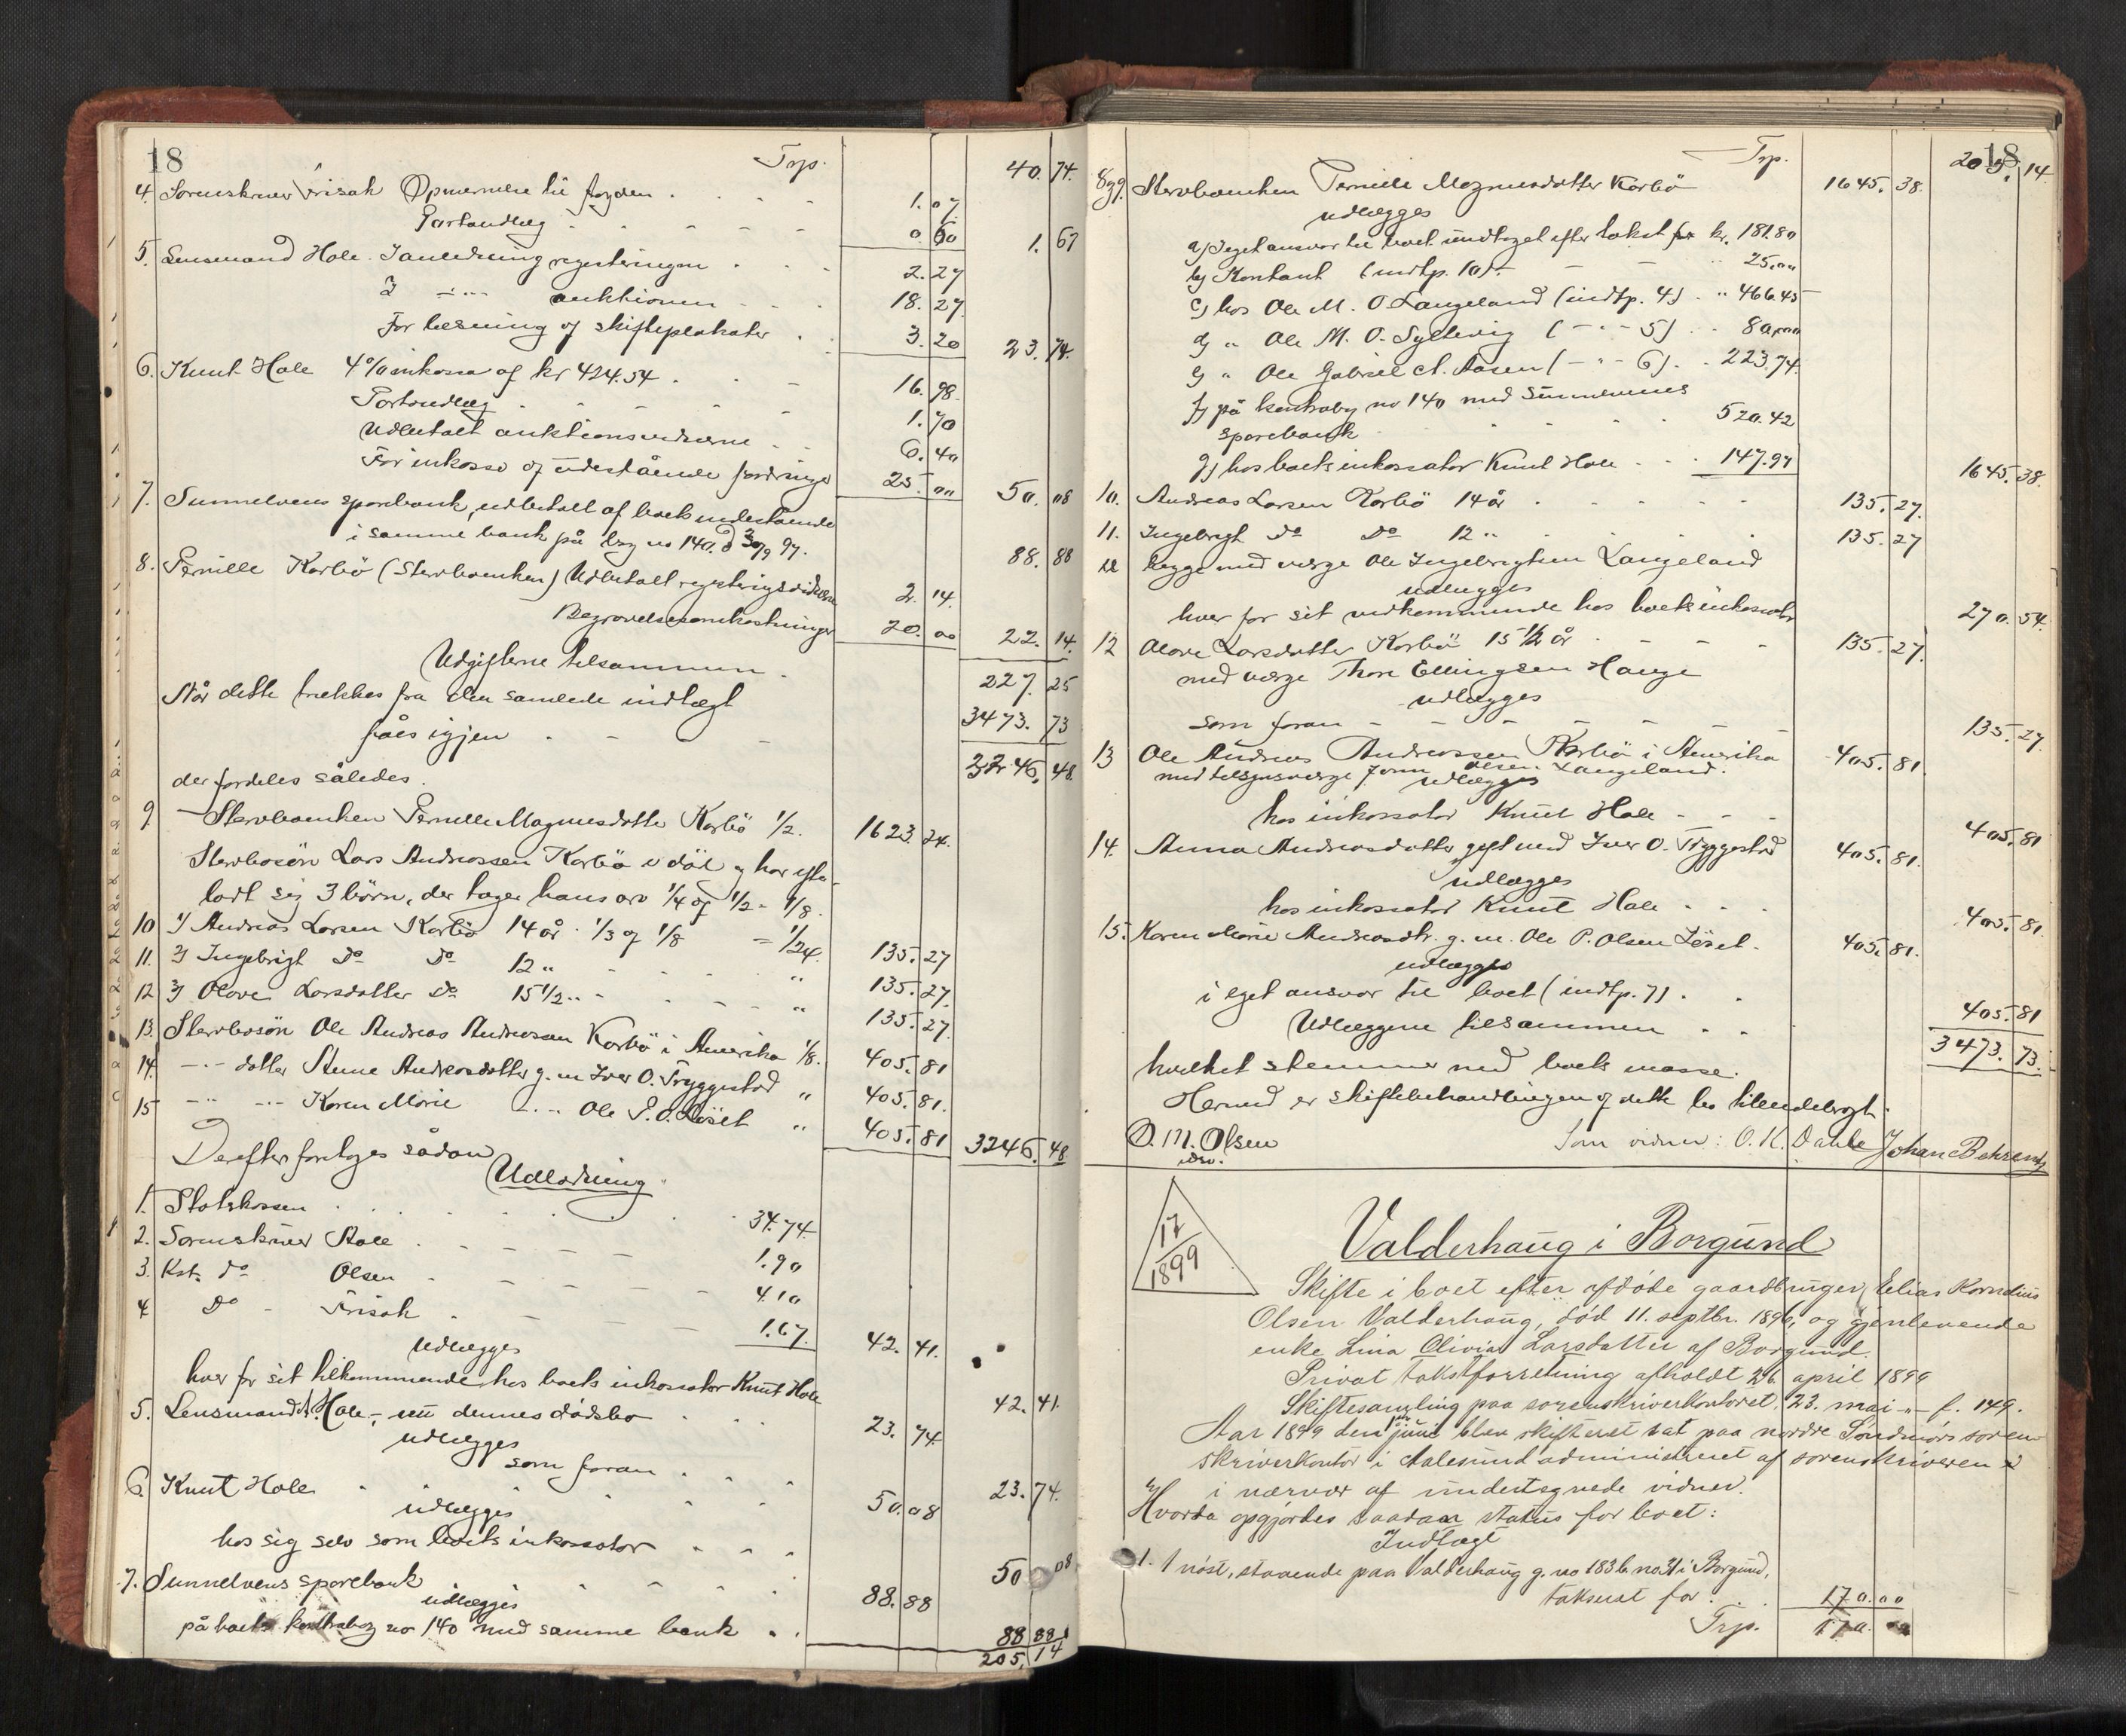 18
Trp. 40. 74.
4. Sorenskriver Frisak Opnævnelse til fogden . . . 1. 07
Portoudlæg . . . 0. 60 1. 67
5. Lensmand Hole. I anledning registeringen . . . 2. 27
I —"— auktionen . . . 18. 27.
For læsning af skifteplakater . . 3. 20 23. 74.
6. Knut Hole 4% inkasso af kr 424.54 . . . 16. 98.
Portoudlæg . . . 1. 70
Udbetalt auktionsvidnerne . . 6. 40
For inkasso af udestående fordringer 25. 00 50. 08
7. Sunnelvens sparebank, udbetalt af boets indestående
i samme bank på bog no 140. d 30/9 97. 88. 88
8. Pernille Korbö (Stervboenken) Udbetalt registrigsvidnerne 2. 14.
Begravelsesomkostninger 20. 00 22. 14.
Udgifterne tilsammen . 227. 25
Når dette trækkes fra den samlede indtægt 3473. 73
fåes igjen . - - 3246. 48.
der fordeles således.
9. Stervboenken Pernille Magnusdatter Korbö 1/2. 1623. 24.
Stervbosön Lars Andreassen Korbö er död og har efter-
ladt sig 3 börn, der tager hans arv 1/4 af 1/2 = 1/8.
10 1) Andreas Larsen Korbö 14 år. 1/3 af 1/8 = 1/24. 135. 27
11. 2) Ingebrigt Do Do 12 " - - - " 135. 27.
12 3) Olove Larsdatter Do 15 1/2 " - - - " 135. 27.
13. Stervbosön Ole Andreas Andreassen Korbö i Amerika 1/8. 405. 81
14. —"— datter Anne Andreasdatter g. m Iver O. Tryggestad " 405. 81.
15 —"— —"— Karen Marie —"— Ole P. O. Löset " 405. 81 3246. 48.
Derefter foretoges sådan
Udlodning
1. Statskassen . . . 34.74.
2. Sorenskriver Aall . . . 1.90
3. Kst. do Olsen . . . 4.10
4 Do - Frisak . . . 1.67. 42. 41.
udlægges
hver for sit tilkommende hos boets inkassator Knut Hole 42. 41.
5. Lensmand Hole, nu dennes dödsbo . . . 23. 74.
udlægges
som foran . . . 23. 74.
6. Knut Hole . . . 50. 08
udlægges
hos sig selv som boets inkassator . . . 50 08
7. Sunnelvens sparebank . . . 88. 88
udlægges
på boets kontrabog no 140 med samme bank . . 88 88
205. 14
18
Trp. 205. 14.
8 og 9. Stervboenken Pernille Magnusdatter Korbö 1645. 38.
udlægges
a) I eget ansvar til boet undtaget efter takst for kr. 181.80
b) Kontant (indtp. 10) - " 25.00
c) hos Ole M. O Langeland (indtp. 4) . " 466.45
d) " Ole M. O. Syltevig ( — " — 5) . 80.00
e) " Ole Gabriel A. Aasen ( — " — 6) . 223.74.
f) på kontrabog no 140 med Sunnelvens
sparebank . . . 520.42
g) hos boets inkassator Knut Hole . . 147.97 1645. 38.
10. Andreas Larsen Korbö 14 år . . . 135. 27.
11. Ingebrigt Do Do 12 " . . . 135. 27
begge med værge Ole Ingebrigtsen Langeland
udlægges
hver for sit vedkommende hos boets inkassator 270. 54.
12 Olove Larsdatter Korbö 15 1/2 år . . . 135. 27.
med værge Thore Ellingsen Hauge
udlægges
som foran - - - 135. 27.
13 Ole Andreas Andreassen Korbö i Amerika 405. 81.
med tilsynsværge Jonn Olsen Langeland.
udlægges
hos inkassator Knut Hole - - - 405. 81
14. Anna Andreasdatter gift med Iver O. Tryggestad 405. 81.
udlægges
hos inkassator Knut Hole . . . 405. 81
15. Karen Marie Andreasdtr. g. m. Ole P. Olsen Löset. 405. 81.
udlægges
i eget ansvar til boet (indtp. 7) . . 405. 81
Udlæggene tilsammen . . 3473. 73.
hvilket stemmer med boets masse.
Hermed er skiftebehandlingen af dette bo tilendebragt.
O. M. Olsen Som vidner: O. K. Dahle Johan Behrentz
edsv.
17
1899
Valderhaug i Borgund
Skifte i boet efter afdöde gaardbruger Elias Kornelius
Olsen Valderhaug, död 11. septbr. 1896, og gjenlevende
enke Lina Olivia Larsdatter af Borgund.
Privat takstforretning afholdt 26 april 1899
Skiftesamling paa sorenskriverkontoret 23. mai —"— f. 149.
Aar 1899 den juni blev skifteret sat paa nordre Söndmörs soren-
skriverkontor i Aalesund administreret af sorenskriveren
i nærvær af undertegnede vidner.
Hvorda opgjördes saadan status for boet:
Indtægt
1. 1 nöst, staaende paa Valderhaug g. no 183 b. no 31 i Borgund,
takseret for . . 170.00
Trp. 170. 00